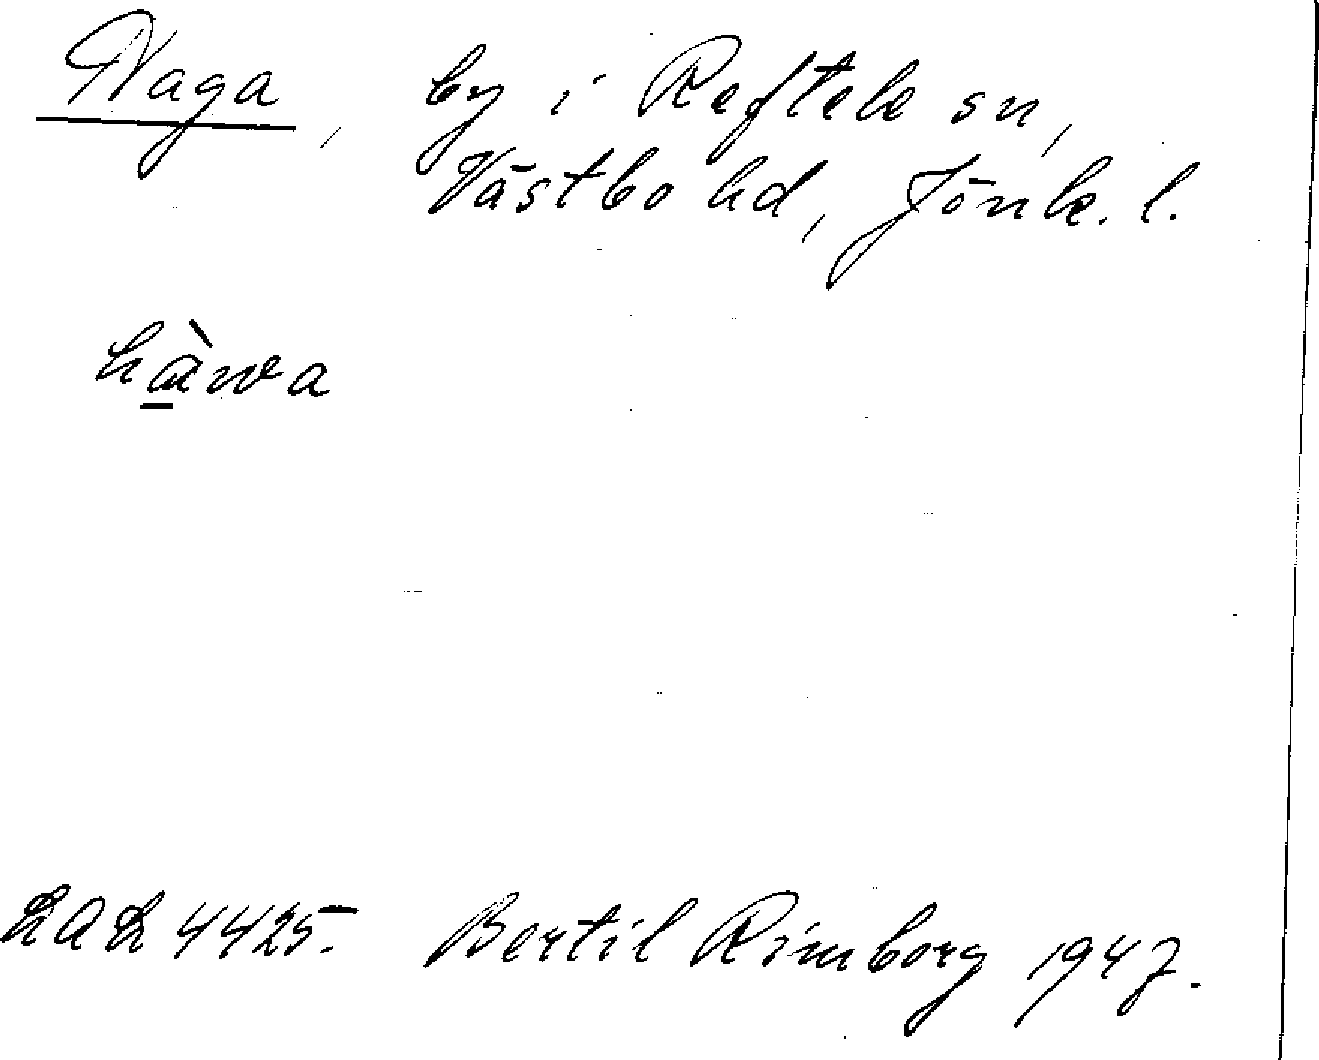 Naga, by i Reftele sn,
Västbo hd, Jönk. l.
hàwa
4425. Bertil Rimborg 1947.